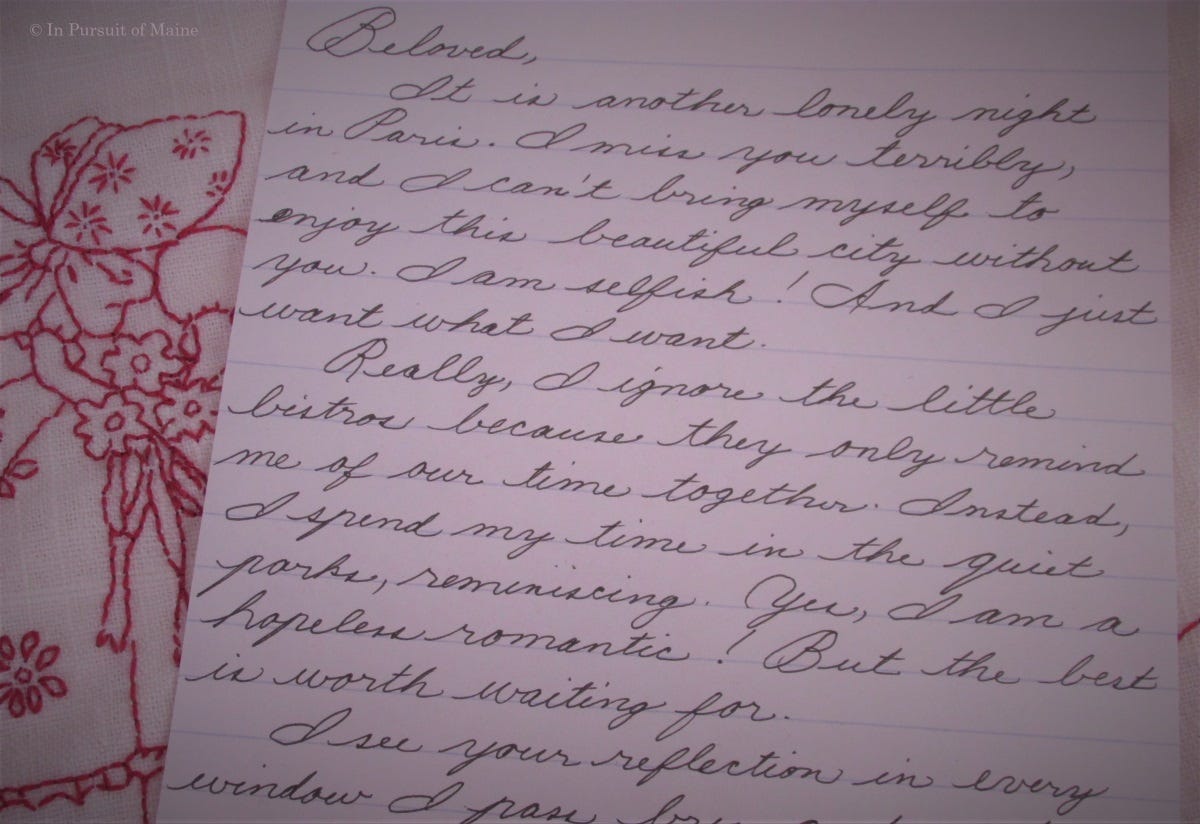 © In Pursuit of Maine
Beloved,
It is another lonely night
in Paris. I miss you terribly,
and I can't bring myself to
enjoy this beautiful city without
you. I am selfish! And I just
want what I want.
Really, I ignore the little
bistros because they only remind
me of our time together. Instead,
I spend my time in the quiet
parks, reminiscing. Yes, I am a
hopeless romantic! But the best
is worth waiting for.
I see your reflection in every
window I pass by.